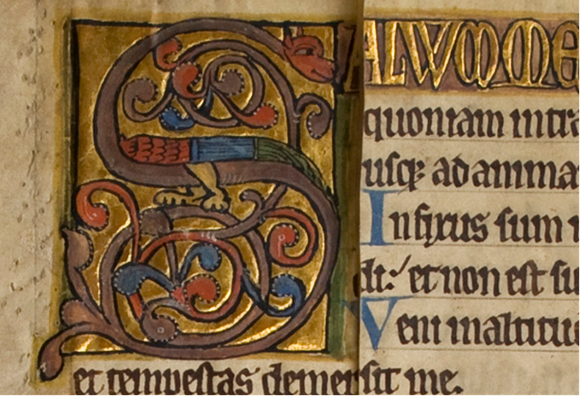 SALUUM ME
quoniam intra
usq; ad anima
Infixus sum
di: et non est su
Veni in altitu
et tempestas demersit me.